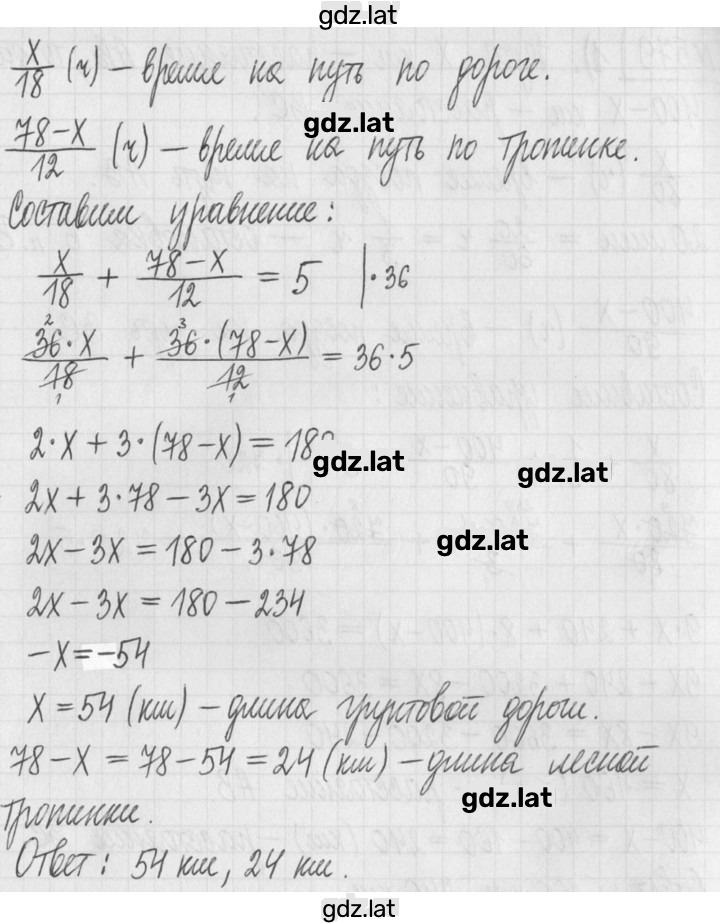 gdz.lat
x/18 (ч) – время на путь по дороге.
gdz.lat
78-x/12 (ч) – время на путь по тропинке.
Составим уравнение:
x/18 + 78-x/12 = 5 |·36
36·x/18 + 36·(78-x)/12 = 36·5
2·x + 3·(78-x) = 180
gdz.lat
gdz.lat
2x + 3·78 - 3x = 180
2x - 3x = 180 - 3·78
gdz.lat
2x - 3x = 180 - 234
-x = -54
x = 54 (км) – длина грунтовой дороги.
78-x = 78-54 = 24 (км) – длина лесной
gdz.lat
тропинки.
Ответ: 54 км, 24 км.
gdz.lat